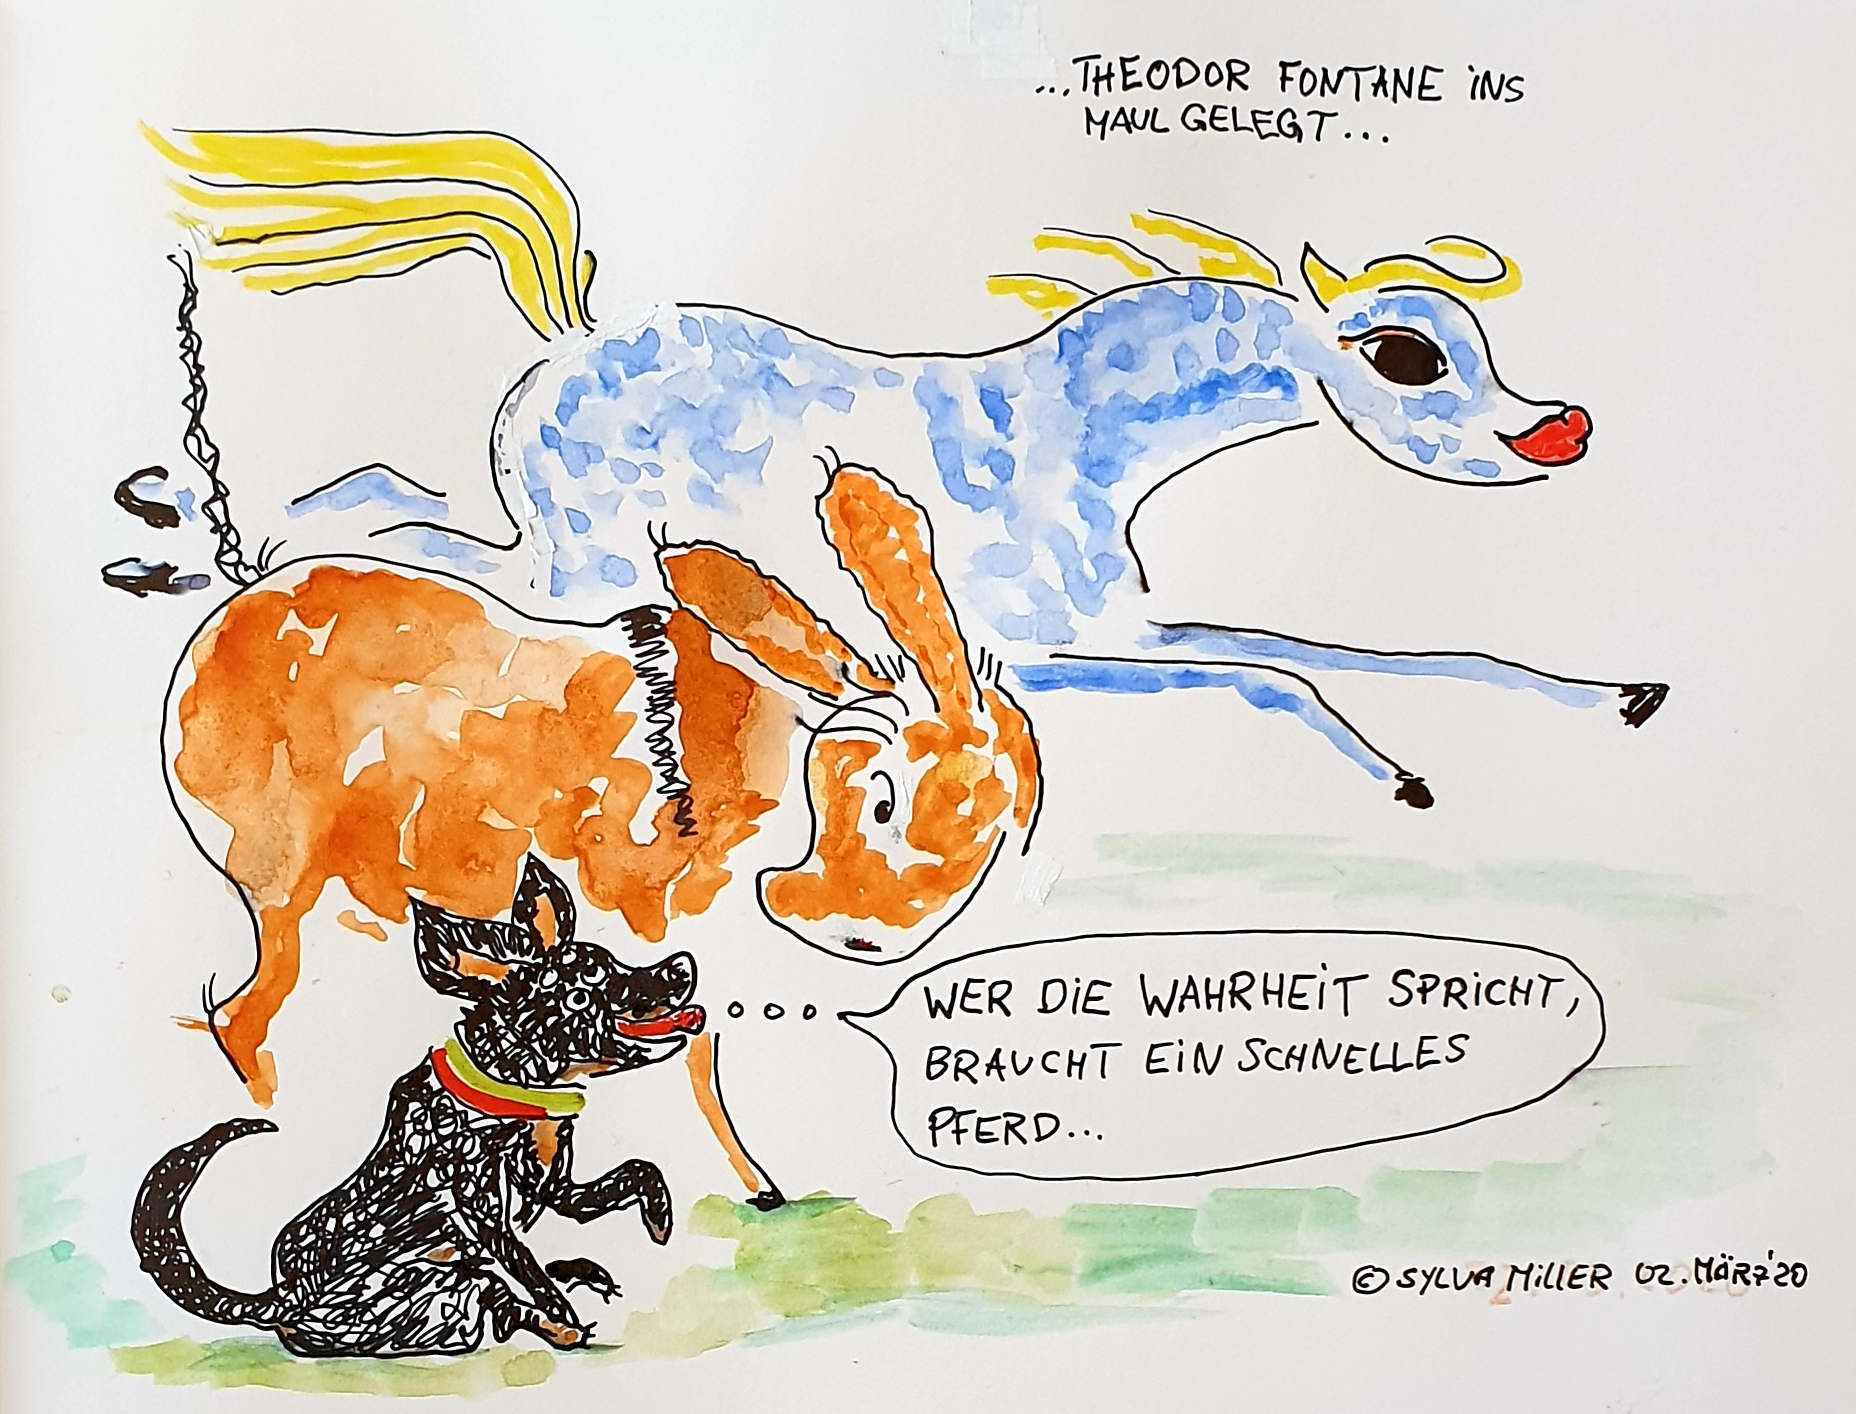 ...THEODOR FONTANE INS
MAUL GELEGT...
WER DIE WAHRHEIT SPRICHT,
BRAUCHT EIN SCHNELLES
PFERD...
© SYLVA MILLER 02. MÄRZ '20